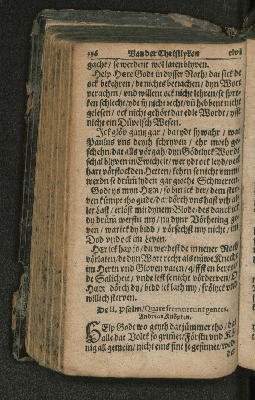 196 Van der Christlyken ewi
gache / se werdent wol laren blyven.
Help Here Godt in dysser Noth / dat sick de
ock bekehren / de nichtes betrachten / dyn Wort
vorachten / und willent ock nicht lehren / se spre-
ken schlecht / ydt sy nicht recht / uñ hebbent nicht
gelesen / ock nicht gehört dat edle Wordt / ysst
nicht ein Düvelsch Wesen.
Ick glöv gantz gar / dat ydt sy wahr / wat
Paulus uns deyth schryven / ehr moth ge-
schehn dat alls vorgah / dyn Gödtlyke Wort
schal blyven in Ewicheit / wer ydt ock leydt
hart vorstockeden Herten / kehrn se nicht umme
werden se drüm lyden gar grothe Schmerten.
Godt ys myn Here / so bin ick der / dem ster-
ven kümpt tho gude / dorch uns hast uth al-
ler last / erlöst mit dynem Blode / des danck ick
dy drüm werstu my / na dyner Vörheting ge-
ven / wat ick dy bidd / vörsechst my nicht / im
Dod unde ock im Leven.
Her ick hap jo / du werdest de in nener Noth
vorlaten / de dyn Wort recht als truwe Knecht
im Herten und Gloven vaten / giffst en bereidt
de Salicheit / unde lest se nicht vörderven
Here dörch dy / bidd ick lath my / frölyck und
willich sterven.
De 11. Psalm /
Andreas Knöpken.
Help Godt wo geyth dat jümmer tho / dat
alle dat Volck so grimmet / Försten und Kö-
nig all gemein / nicht eins sint se gesinnet / wed-
der